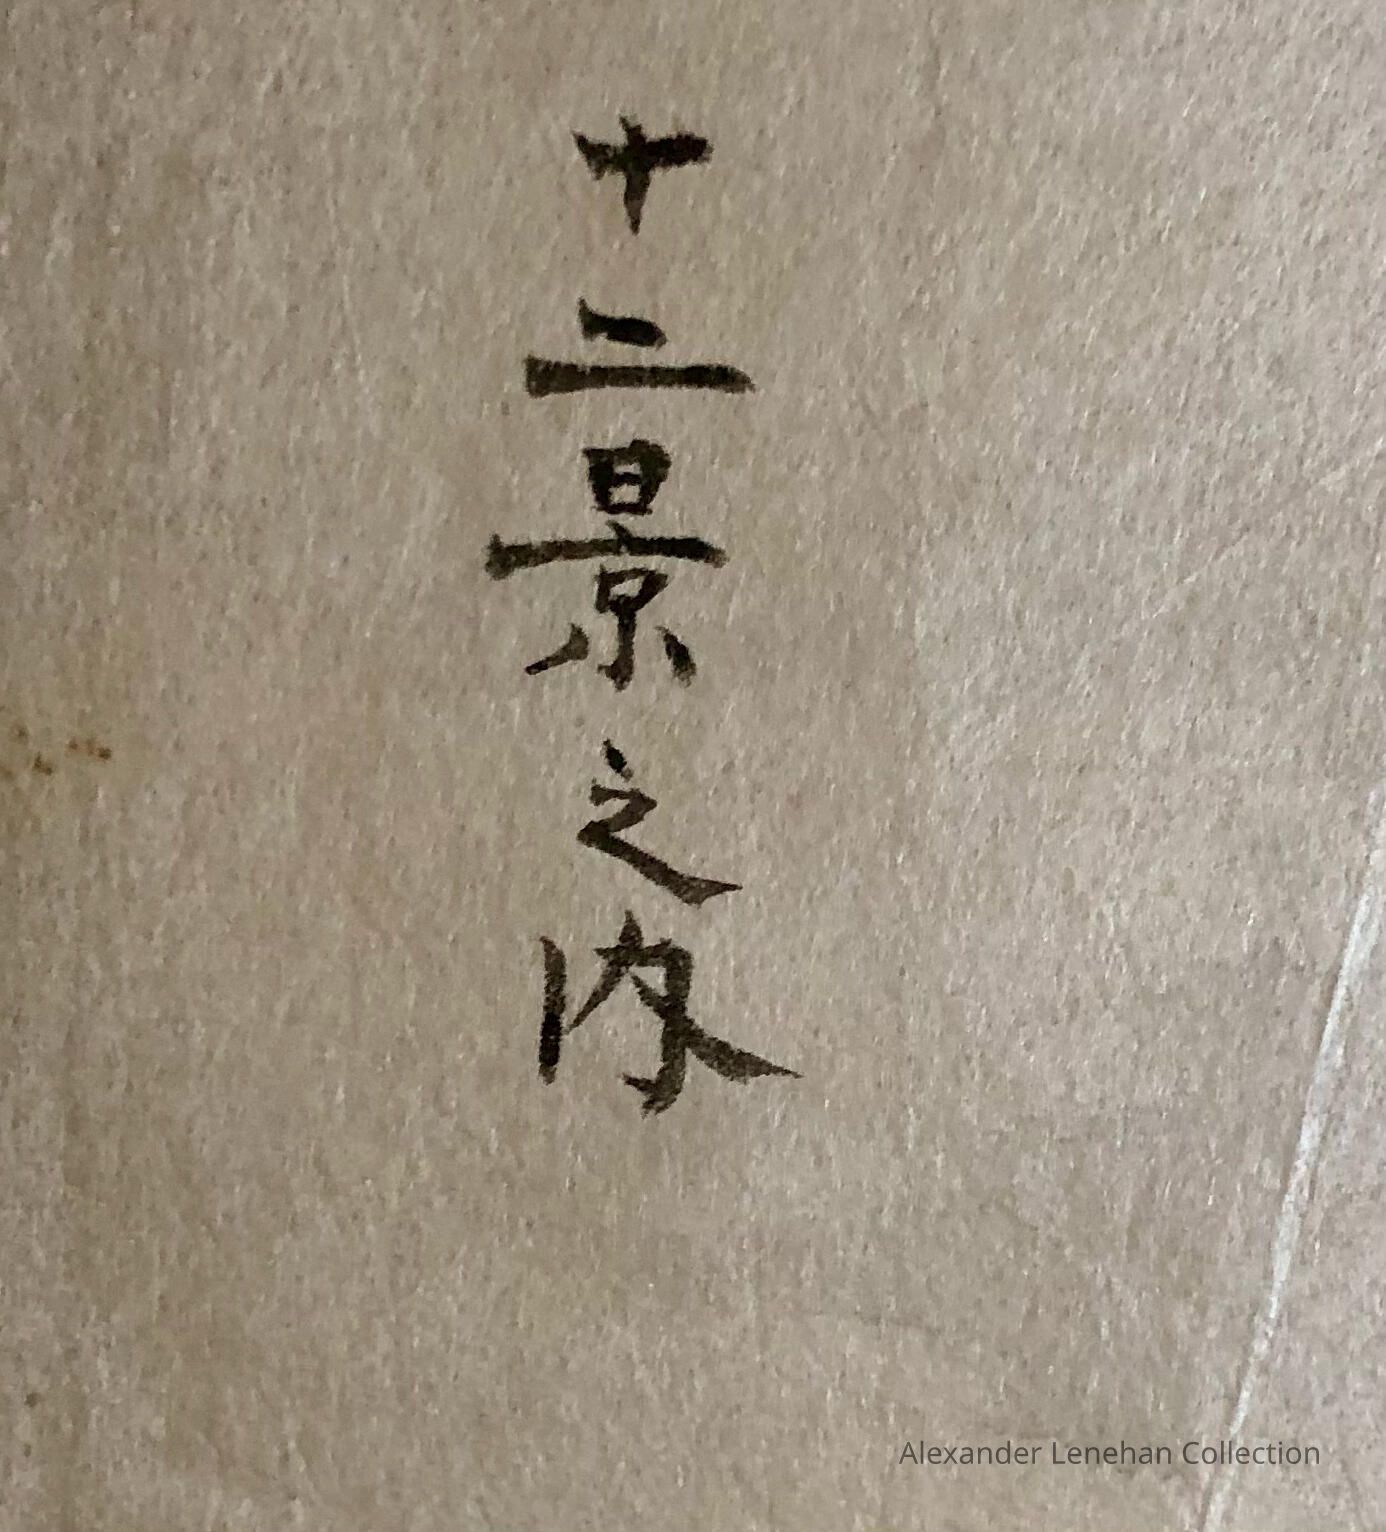 十二景之内
Alexander Lenehan Collection